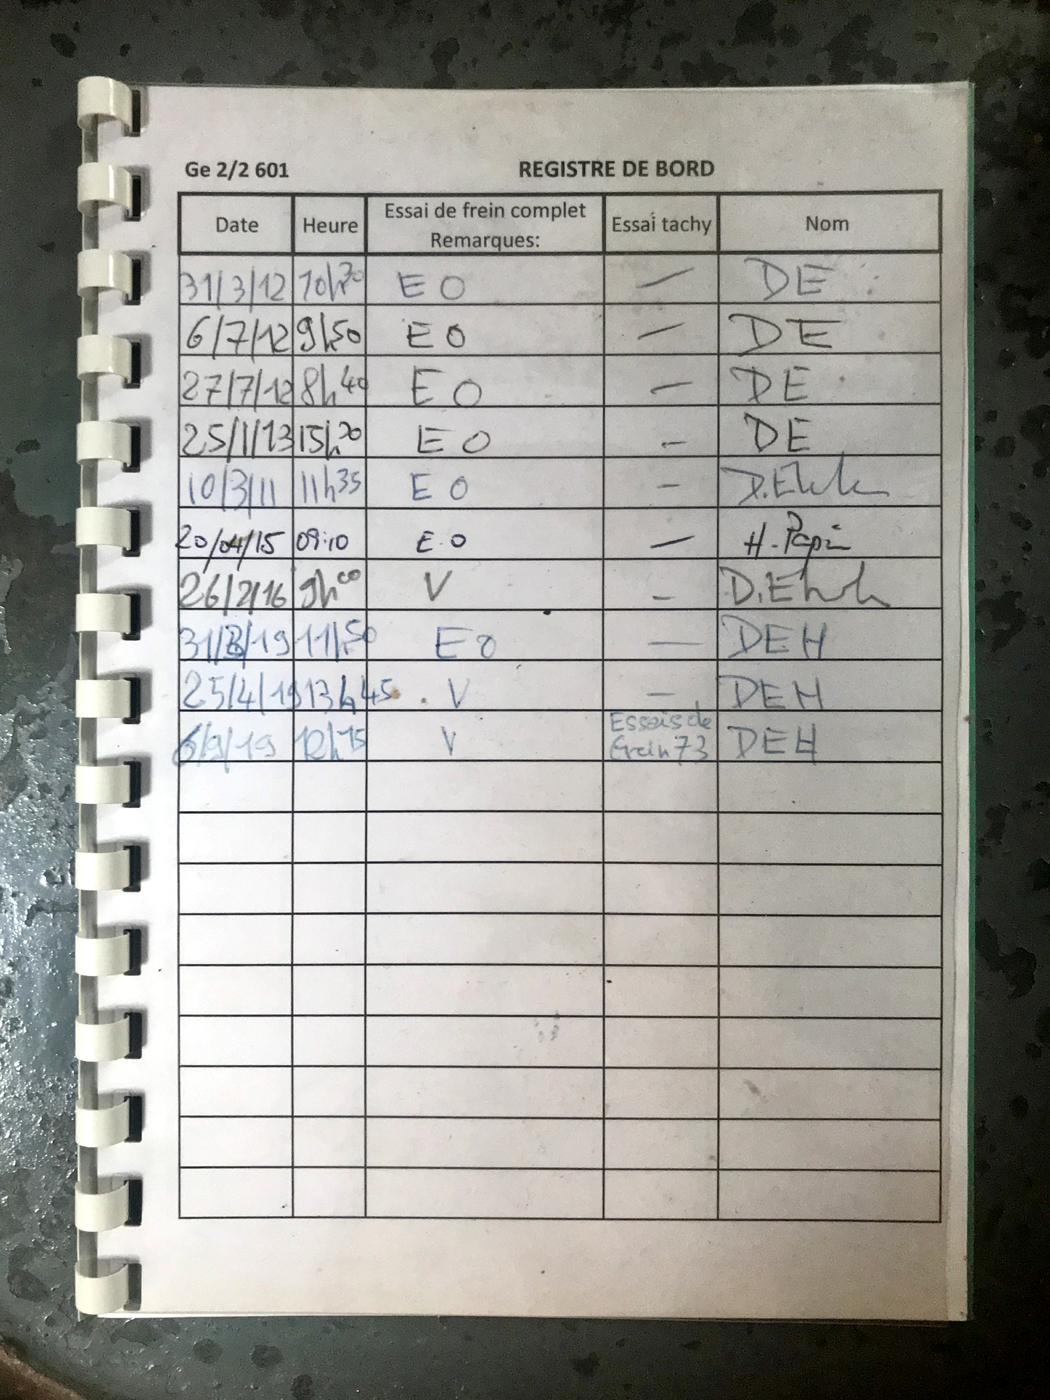 Ge 2/2 601 REGISTRE DE BORD
Date Heure Essai de frein complet Remarques: Essai tachy Nom
31/3/12 10h20 E O — DE
6/7/12 9h50 E O — DE
27/7/12 8h40 E O — DE
25/1/13 15h20 E O — DE
10/3/11 11h35 E O —
20/04/15 09:10 E.O — H. Papi
26/2/16 9h00 V —
31/3/19 11h50 E O — DEH
25/4/19 13h45 V — DEH
6/9/19 12h15 V Essais de frein 73 DEH